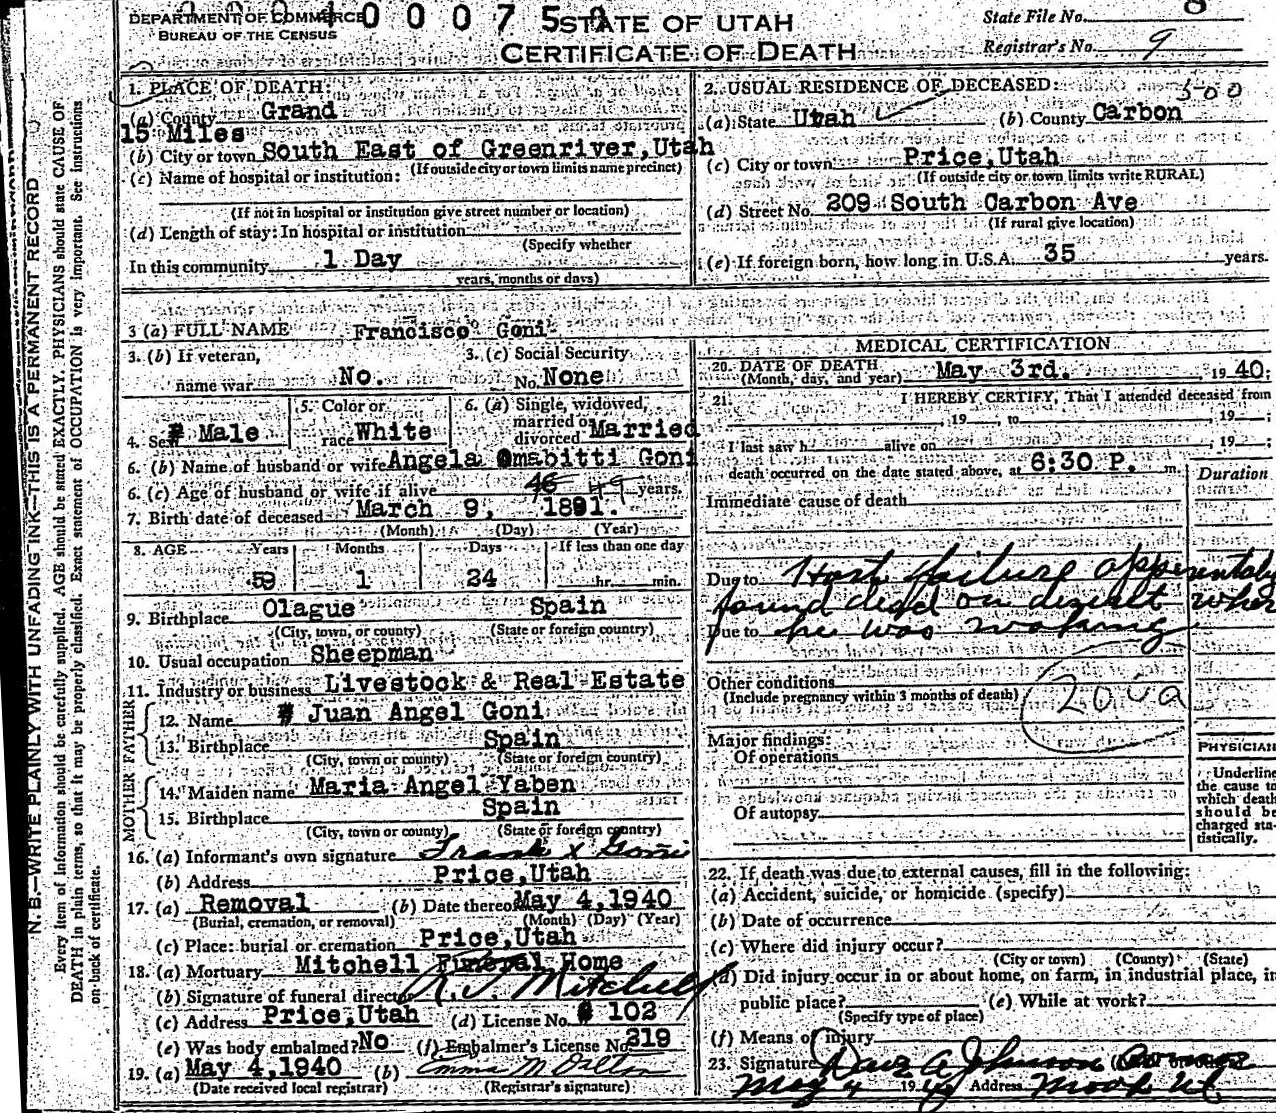 DEPARTMENT OF COMMERCE
BUREAU OF THE CENSUS
0 0 0 7 5
STATE OF UTAH
CERTIFICATE OF DEATH
State File No. 8
Registrar's No. 9
1. PLACE OF DEATH:
(a) County Grand
15 Miles
(b) City or town South East of Greenriver, Utah
(If outside city or town limits name precinct)
(c) Name of hospital or institution:
(If not in hospital or institution give street number or location)
(d) Length of stay: In hospital or institution
(Specify whether
In this community 1 Day
years, months or days)
2. USUAL RESIDENCE OF DECEASED: 500
(a) State Utah (b) County Carbon
(c) City or town Price, Utah
(If outside city or town limits write RURAL)
(d) Street No. 209 South Carbon Ave
(If rural give location)
(e) If foreign born, how long in U.S.A. 35 years.
3 (a) FULL NAME Francisco Goni
3. (b) If veteran, name war No.
3. (c) Social Security No. None
4. Sex Male
5. Color or race White
6. (a) Single, widowed, married or divorced Married
6. (b) Name of husband or wife Angela Omabitti Goni
6. (c) Age of husband or wife if alive 46 49 years.
7. Birth date of deceased March 9, 1881.
(Month) (Day) (Year)
8. AGE Years Months Days If less than one day
59 1 24 hr. min.
9. Birthplace Olague Spain
(City, town, or county) (State or foreign country)
10. Usual occupation Sheepman
11. Industry or business Livestock & Real Estate
FATHER
12. Name # Juan Angel Goni
13. Birthplace Spain
(City, town or county) (State or foreign country)
MOTHER
14. Maiden name Maria Angel Yaben
15. Birthplace Spain
(City, town or county) (State or foreign country)
16. (a) Informant's own signature Frank x Goni
(b) Address Price, Utah
17. (a) Removal (b) Date thereof May 4, 1940
(Burial, cremation, or removal) (Month) (Day) (Year)
(c) Place: burial or cremation Price, Utah
18. (a) Mortuary Mitchell Funeral Home
(b) Signature of funeral director Mitchell
(c) Address Price, Utah (d) License No. # 102
(e) Was body embalmed? No (f) Embalmer's License No. 219
19. (a) May 4, 1940 (b) Emma M
(Date received local registrar) (Registrar's signature)
MEDICAL CERTIFICATION
20. DATE OF DEATH
(Month, day, and year) May 3rd. 19 40;
21. I HEREBY CERTIFY, That I attended deceased from
, 19 , to , 19 ;
I last saw h alive on , 19 ;
death occurred on the date stated above, at 6:30 P. m.
Duration
Immediate cause of death
Due to Hart failure apperentaly
found dead on desealt wher
Due to he was
Other conditions
(Include pregnancy within 3 months of death)
200a
Major findings:
Of operations
Of autopsy
PHYSICIAN
Underline
the cause to
which death
should be
charged sta-
tistically.
22. If death was due to external causes, fill in the following:
(a) Accident, suicide, or homicide (specify)
(b) Date of occurrence
(c) Where did injury occur?
(City or town) (County) (State)
(d) Did injury occur in or about home, on farm, in industrial place, in
public place? (e) While at work?
(Specify type of place)
(f) Means of injury
23. Signature Dave A Johnson
May 4 19 40 Address Ut
N. B.—WRITE PLAINLY WITH UNFADING INK—THIS IS A PERMANENT RECORD
Every item of information should be carefully supplied. AGE should be stated EXACTLY. PHYSICIANS should state CAUSE OF
DEATH in plain terms, so that it may be properly classified. Exact statement of OCCUPATION is very important. See instructions
on back of certificate.